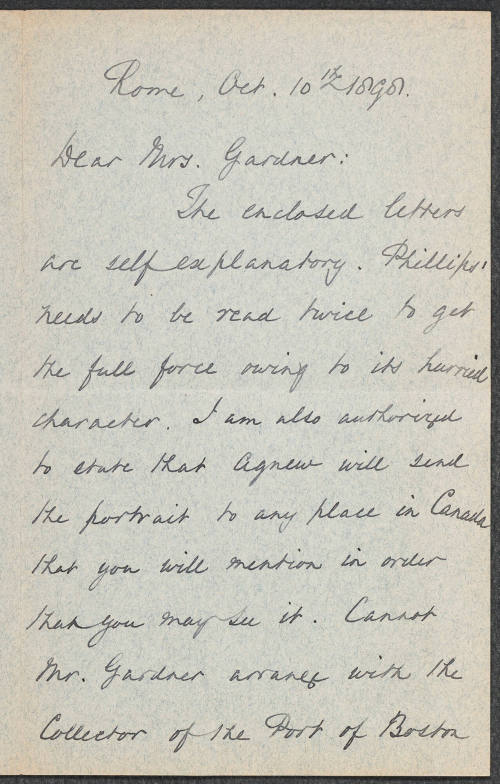 Rome, Oct. 10th 1898.
Dear Mrs. Gardner:
The enclosed letters
are self explanatory. Phillips'
needs to be read twice to get
the full force owing to its hurried
character. I am also authorized
to state that Agnew will send
the portrait to any place in Canada
that you will mention in order
that you may see it. Cannot
Mr. Gardner arrange with the
Collector of the Port of Boston